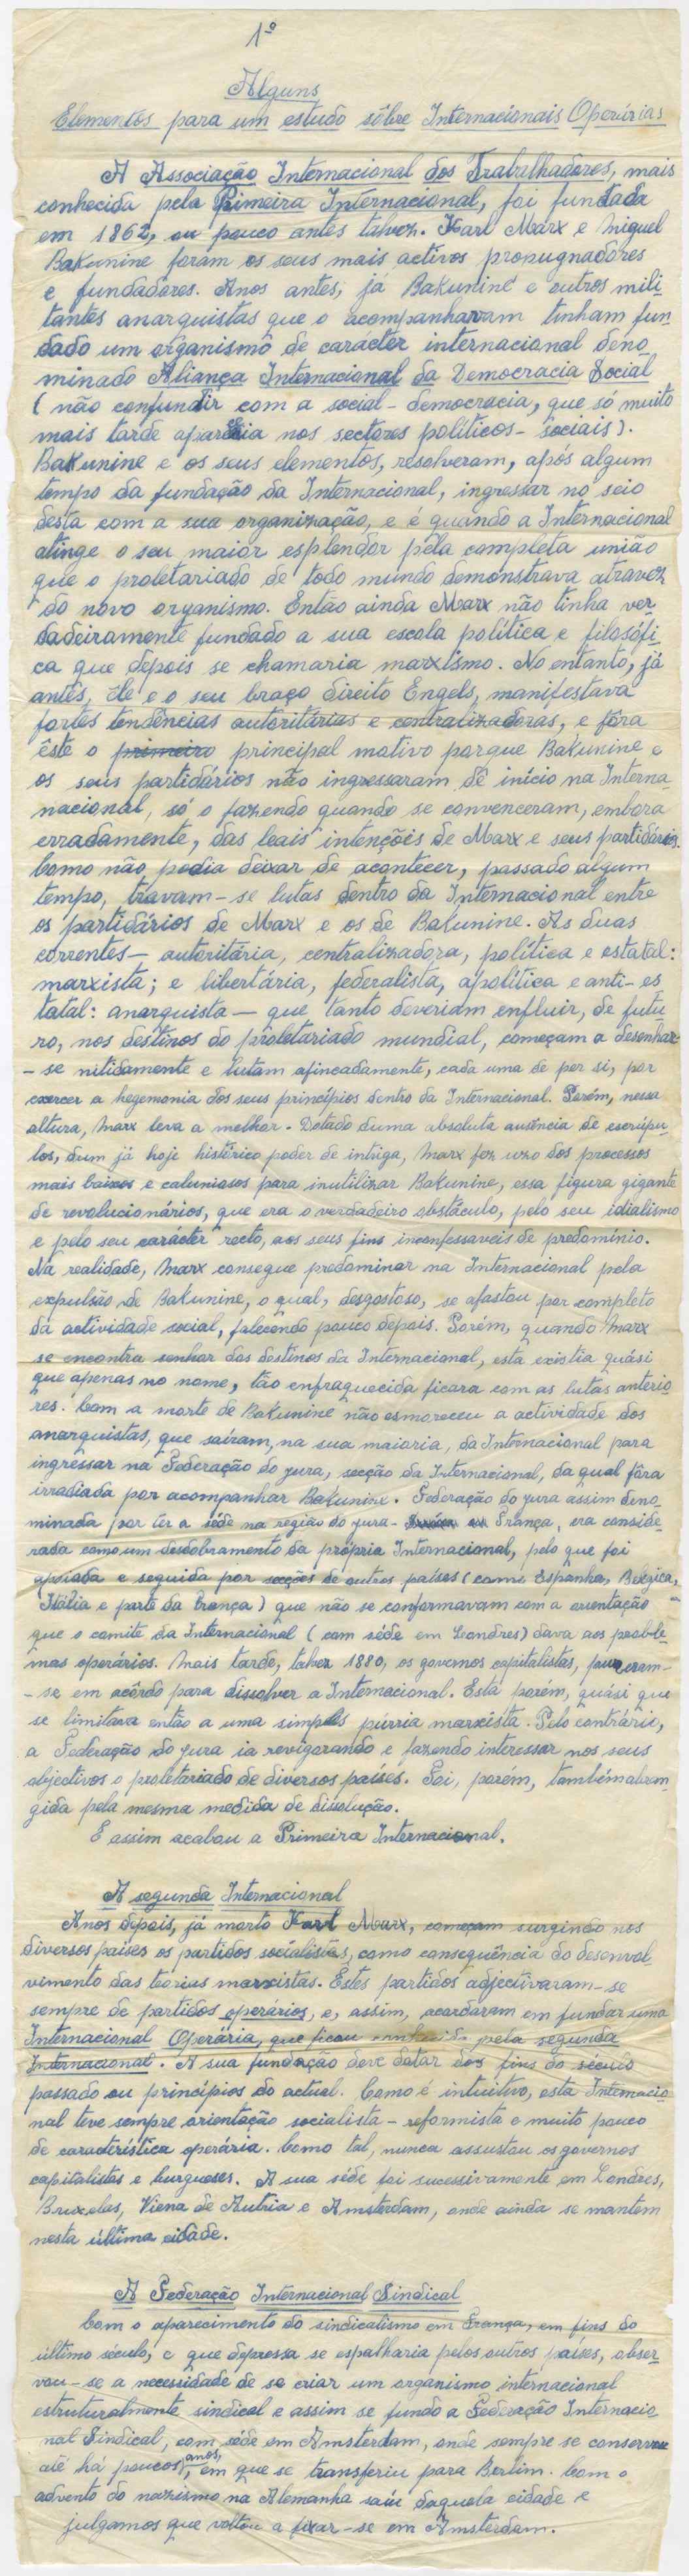 1º
Alguns
Elementos para um estudo sôbre Internacionais Operárias
A Associação Internacional dos Trabalhadores, mais
conhecida pela Primeira Internacional, foi fundada
em 1862, ou pouco antes talvez. Karl Marx e Miguel
Bakunine foram os seus mais activos propugnadores
e fundadores. Anos antes, já Bakunine e outros mili-
tantes anarquistas que o acompanhavam tinham fun-
dado um organismo de caracter internacional deno-
minado Aliança Internacional da Democracia Social
(não confundir com a social-democracia, que só muito
mais tarde apareceia nos sectores políticos-sociais).
Bakunine e os seus elementos, resolveram, após algum
tempo da fundação da Internacional, ingressar no seio
desta com a sua organização, e é quando a Internacional
atinge o seu maior esplendor pela completa união
que o proletariado de todo mundo demonstrava atravez
do novo organismo. Então ainda Marx não tinha ver-
dadeiramente fundado a sua escola política e filosófi-
ca que depois se chamaria marxismo. No entanto, já
antes, êle e o seu braço direito Engels, manifestava
fortes tendências autoritárias e centralizadoras, e fôra
êste o primeiro principal motivo porque Bakunine e
os seus partidários não ingressaram dê início na Interna-
nacional, só o fazendo quando se convenceram, embora
erradamente, das leais intenções de Marx e seus partidários.
Como não podia deixar de acontecer, passado algum
tempo, travam-se lutas dentro da Internacional entre
os partidários de Marx e os de Bakunine. As duas
correntes — autoritária, centralizadora, política e estatal:
marxista; e libertária, federalista, apolítica e anti-es-
tatal: anarquista — que tanto deveriam enfluir, de futu-
ro, nos destinos do proletariado mundial, começam a desenhar-
-se nitidamente e lutam afincadamente, cada uma de per si, por
exercer a hegemonia dos seus princípios dentro da Internacional. Porém, nessa
altura, Marx leva a melhor. Dotado duma absoluta ausência de escrúpu-
los, dum já hoje histórico poder de intriga, Marx fez uzo dos processos
mais baixos e caluniosos para inutilizar Bakunine, essa figura gigante
de revolucionários, que era o verdadeiro obstáculo, pelo seu idialismo
e pelo seu carácter recto, aos seus fins inconfessaveis de predomínio.
Na realidade, Marx consegue predominar na Internacional pela
expulsão de Bakunine, o qual, desgostoso, se afastou por completo
da actividade social, falecendo pouco depois. Porém, quando Marx
se encontra senhor dos destinos da Internacional, esta existia quási
que apenas no nome, tão enfraquecida ficara com as lutas anterio-
res. Com a morte de Bakunine não esmoreceu a actividade dos
anarquistas, que saíram, na sua maioria, da Internacional para
ingressar na Federação do Jura, secção da Internacional, da qual fôra
irradiada por acompanhar Bakunine. Federação do Jura assim deno-
minada por ter a séde na região do Jura - França, era conside-
rada como um desdobramento da própria Internacional, pelo que foi
apoiada e seguida por secções de outros países (como Espanha, Belgica,
Itália e parte da França) que não se conformavam com a orientação
que o comite da Internacional (com séde em Londres) dava aos proble-
mas operários. Mais tarde, talvez 1880, os governos capitalistas, puzeram-
-se em acôrdo para dissolver a Internacional. Esta porém, quási que
se limitava então a uma simples púrria marxista. Pelo contrário,
a Federação do Jura ia revigorando e fazendo interessar nos seus
objectivos o proletariado de diversos países. Foi, porém, também abran-
gida pela mesma medida de dissolução.
E assim acabou a Primeira Internacional.
A segunda Internacional
Anos depois, já morto Karl Marx, começam surgindo nos
diversos países os partidos socialistas, como consequência do desenvol-
vimento das teorias marxistas. Estes partidos adjectivaram-se
sempre de partidos operários, e, assim, acordaram em fundar uma
Internacional Operária, que ficou conhecida pela segunda
Internacional. A sua fundação deve datar dos fins do século
passado ou princípios do actual. Como é intuitivo, esta Internacio-
nal teve sempre orientação socialista-reformista e muito pouco
de característica operária. Como tal, nunca assustou os governos
capitalistas e burgueses. A sua séde foi sucessivamente em Londres,
Bruxelas, Viena de Autria e Amsterdam, onde ainda se mantem
nesta última cidade.
A Federação Internacional Sindical
Com o aparecimento do sindicalismo em França, em fins do
último século, e que depressa se espalharia pelos outros países, obser-
vou-se a necessidade de se criar um organismo internacional
estruturalmente sindical e assim se fundo a Federação Internacio-
nal Sindical, com séde em Amsterdam, onde sempre se conservou
até há poucos anos, em que se transferiu para Berlim. Com o
advento do nazismo na Alemanha saíu daquela cidade e
julgamos que voltou a fixar-se em Amsterdam.